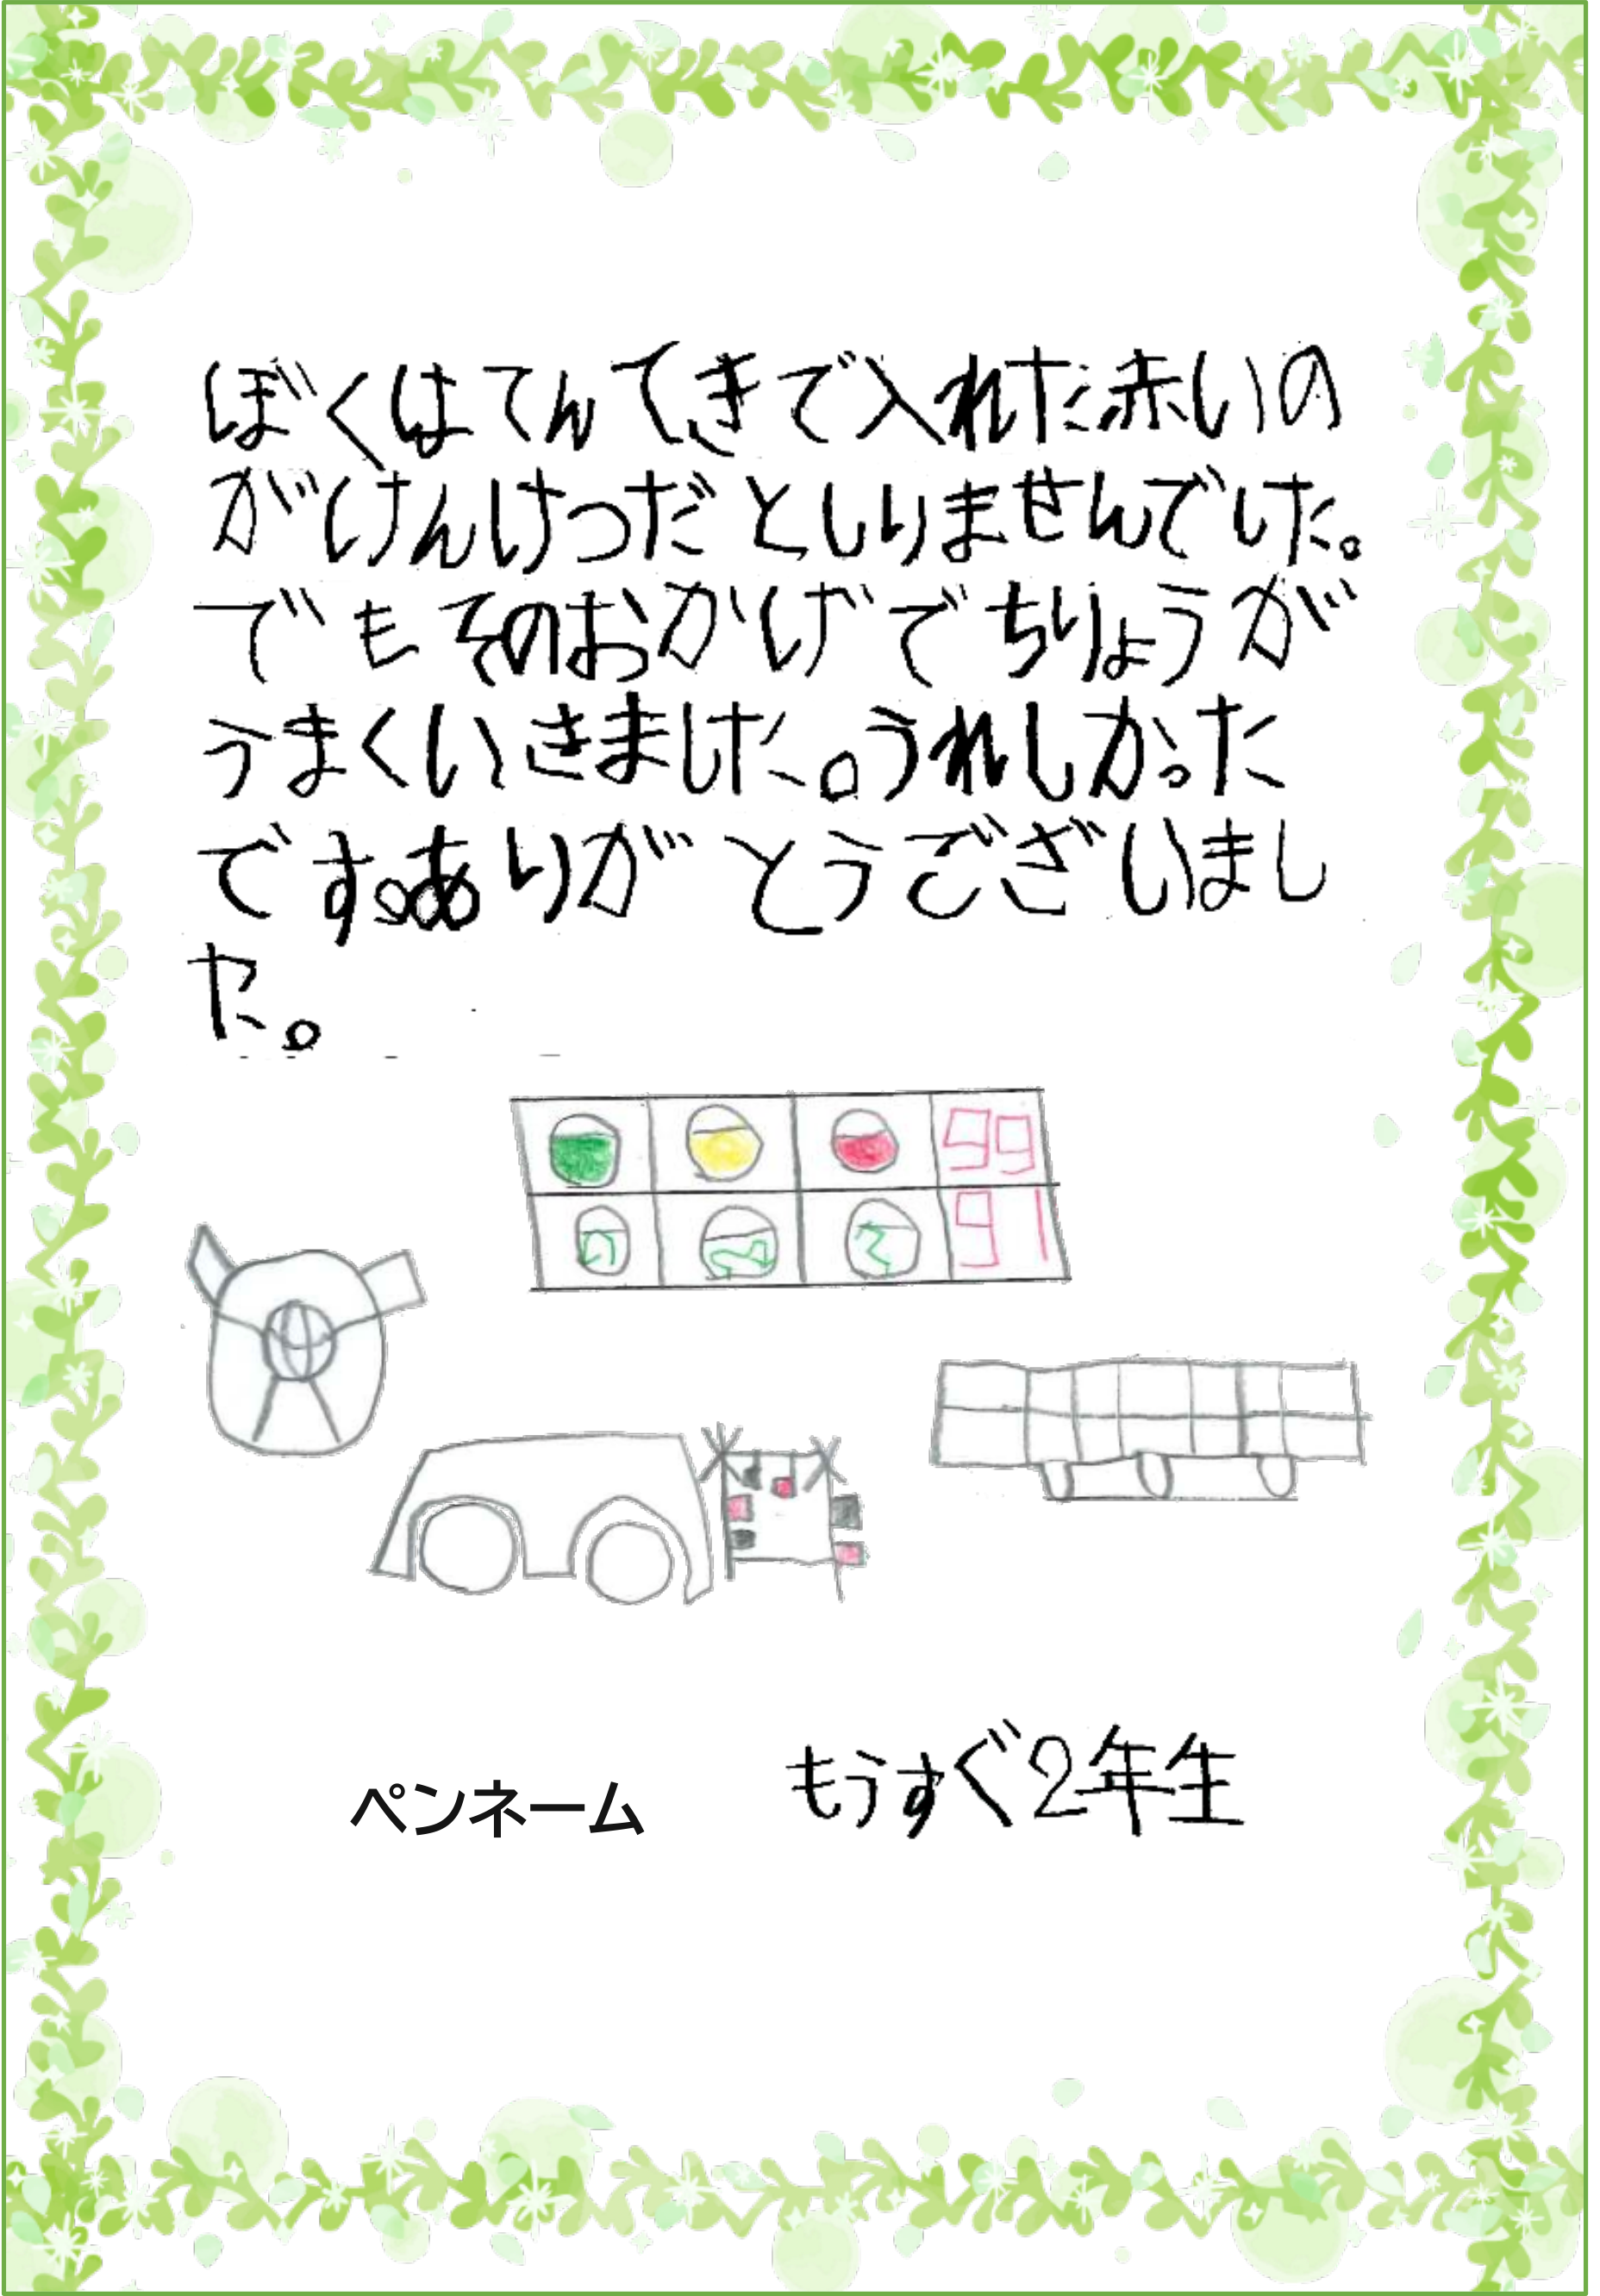 ぼくはてんてきで入れた赤いの
がけんけつだとしりませんでした。
でもそのおかげでちりょうが
うまくいきました。うれしかった
です。ありがとうございまし
た。
99
91
ペンネーム もうすぐ2年生